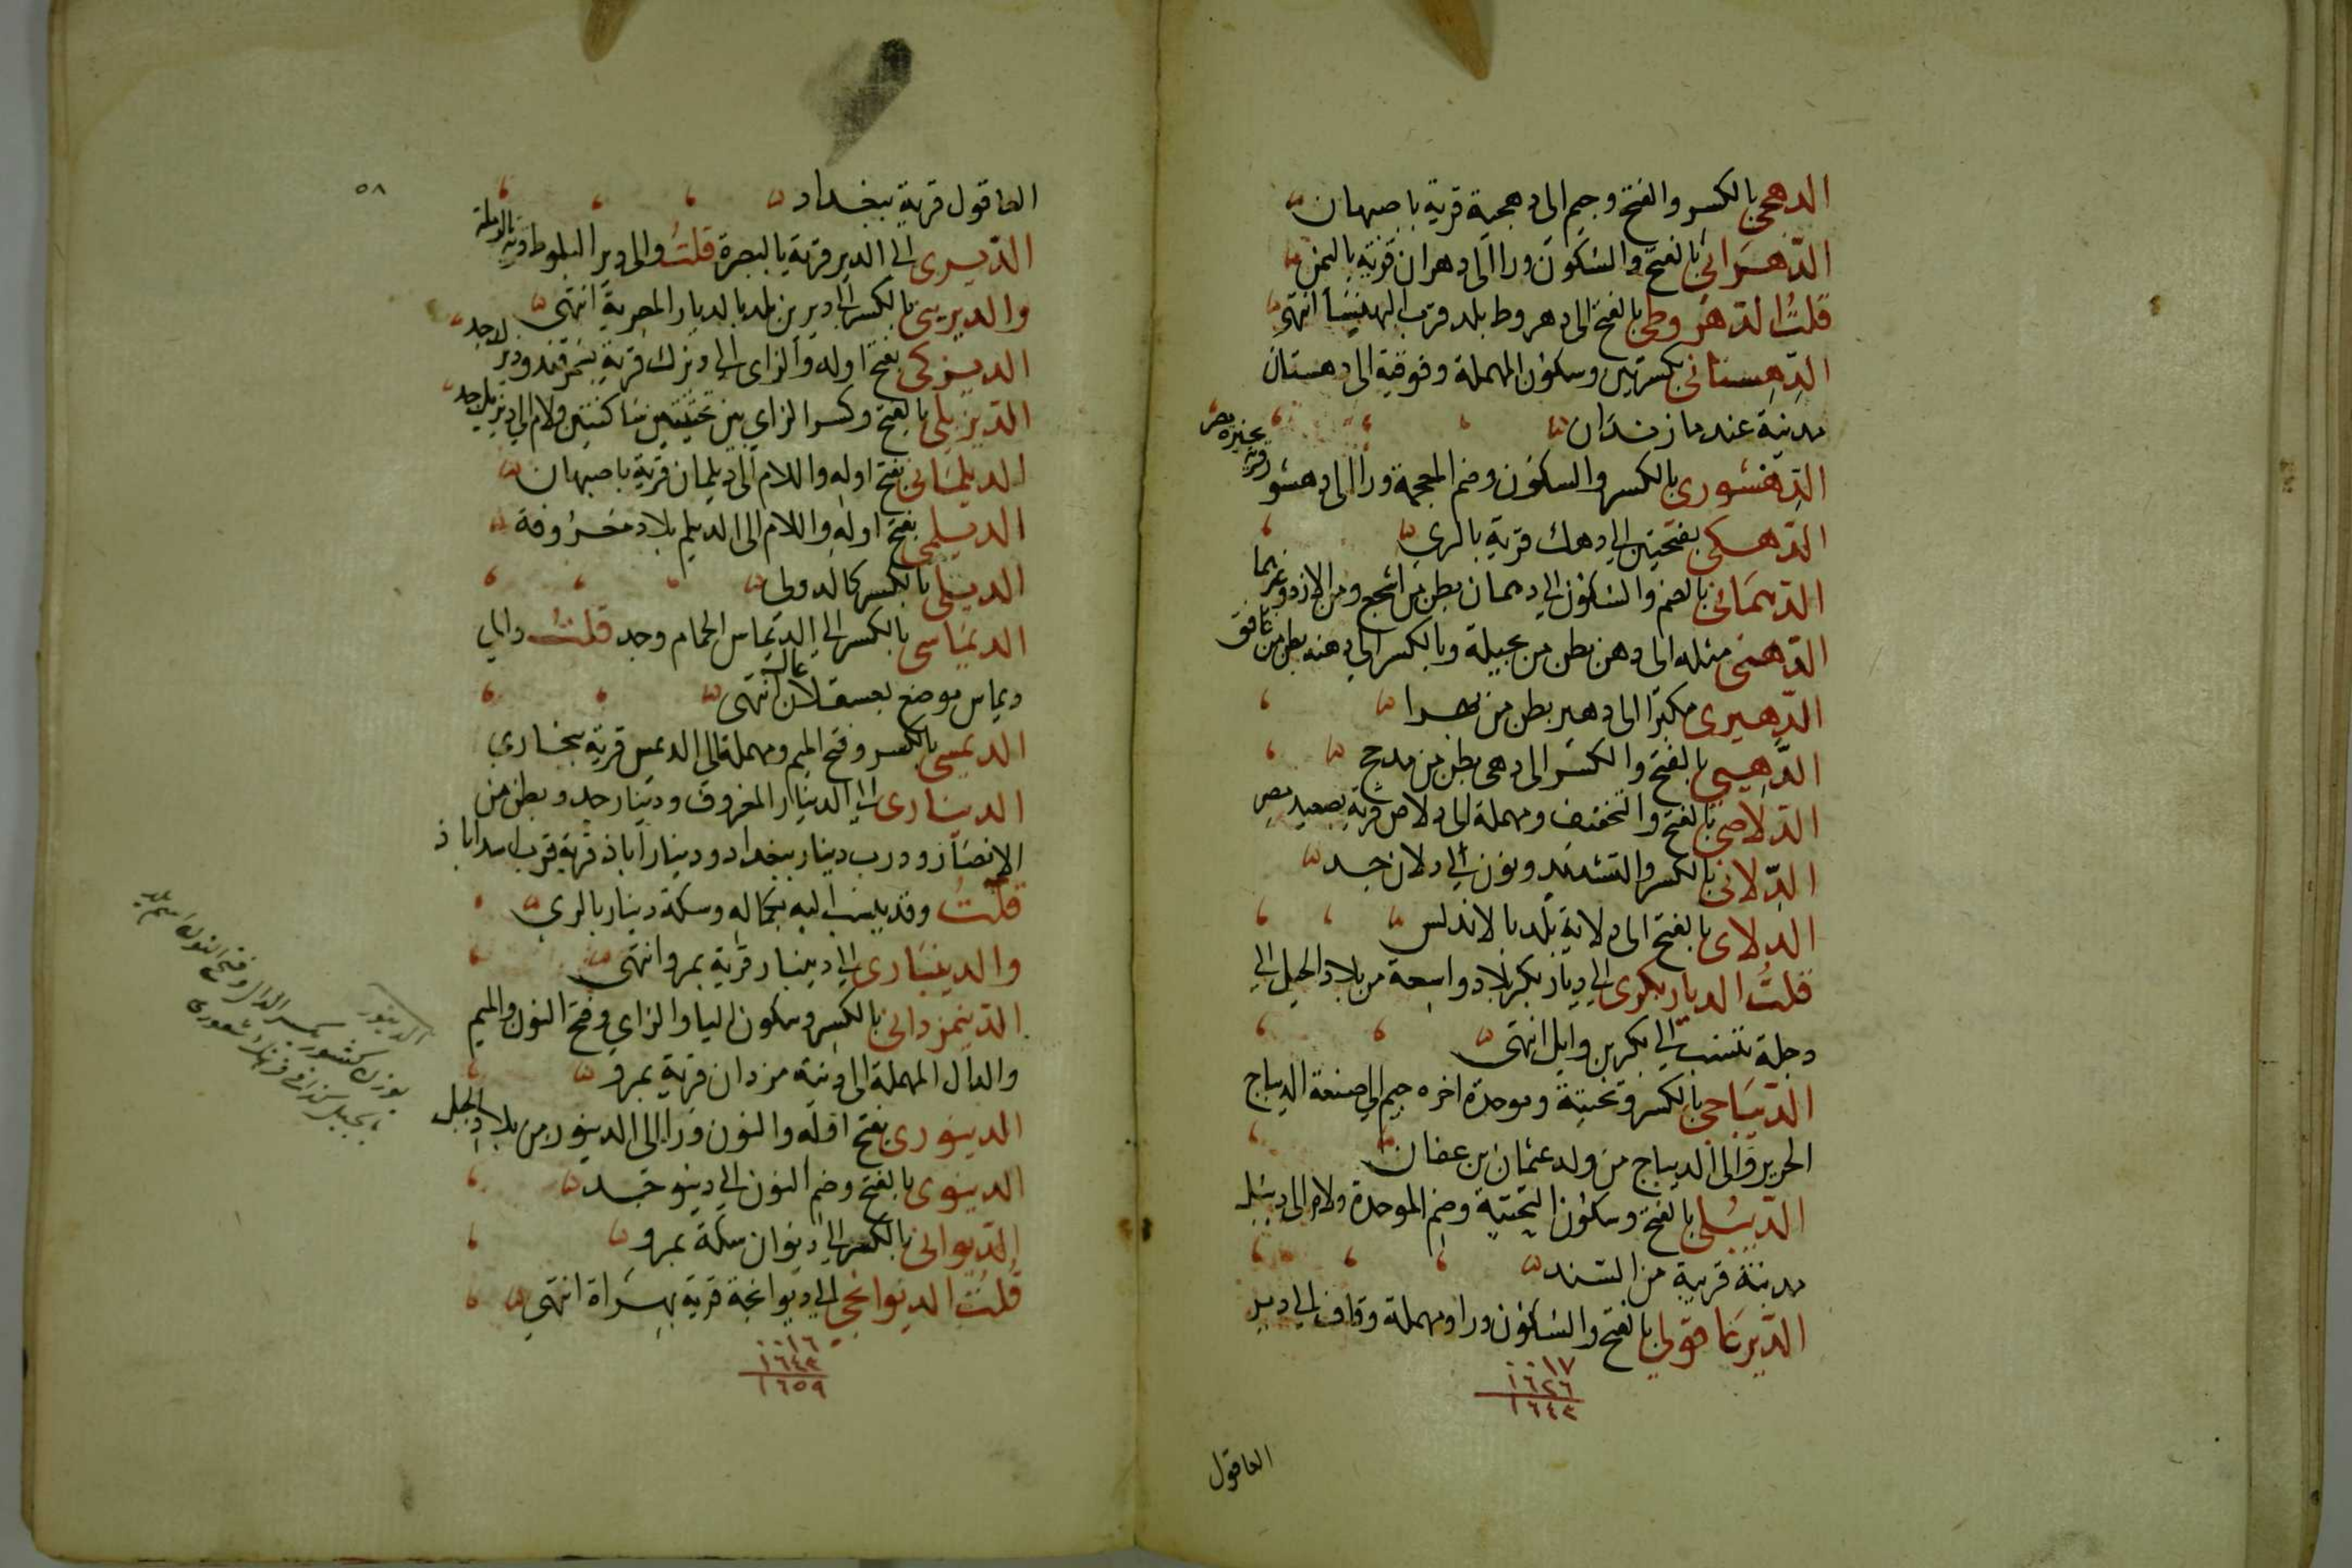 الدهجى بالكسر والفتح وجيم الى دهجية قرية باصبهان
الدهرانى بالفتح والسكون ورا الى دهران قرية باليمن
قلت الدهروطى بالفتح الى دهروط بلد قرب البهنسا انتهى
الدهستانى بكسرتين وسكون المهملة وفوقية الى دهستان
مدينة عند مازندران
الدهشورى بالكسر والسكون وضم المعجمة ورا الى دهشور قرية بجيزة مصر
الدهكى بفتحتين الى دهك قرية بالري
الدهمانى بالضم والسكون الى دهمان بطن من اشجع ومن الازد وغيرهما
الدهنى مثله الى دهن بطن من بجيلة وبالكسر الى دهنه بطن من غافق
الدهيرى مكبرا الى دهير بطن من بهرا
الدهيى بالفتح والكسر الى دهى بطن من مدحج
الدلاصى بالفتح والتخفيف ومهملة الى دلاص قرية بصعيد مصر
الدلانى بالكسر والتشديد ونون الى دلان جد
الدلاى بالفتح الى دلاية بلد بالاندلس
قلت الديار بكرى الى ديار بكر بلاد واسعة من بلاد الجبل الى
دجلة تنسب الى بكر بن وايل انتهى
الديباجى بالكسر وتحتية وموحدة اخره جيم الى صنعة الديباج
الحرير والى الديباج من ولد عثمان بن عفان
الديبلى بالفتح وسكون التحتية وضم الموحدة ولام الى ديبل
مدينة قريبة من السند
الديرعاقولى بالفتح والسكون ورا ومهملة وقاف الى دير
٠٠١٧
١٦٢٦
١٦٤٣
العاقول
٥٨
العاقول قرية ببغداد
الديرى الى الدير قرية بالبصرة قلت والى دير البلوط قرية بالرملة
والديرينى بالكسر الى ديرين بلد بالديار المصرية انتهى
الديزكى بفتح اوله والزاى الى ديزك قرية بسمرقند ودير لاجد
الديزيلى بالفتح وكسر الزاي بين تحتيتين ساكنتين ولام الى ديزيل جد
الديلمانى بفتح اوله واللام الى ديلمان قرية باصبهان
الديلمى بفتح اوله واللام الى الديلم بلاد معروفة
الديلى بالكسر كالدولى
الديماسى بالكسر الى الديماس الحمام وجد قلت والى
ديماس موضع بعسقلان انتهى
الديمسى بالكسر وفتح الميم ومهملة الى الديمس قرية ببخارى
الدينارى الى الدينار المعروف ودينار جد وبطن من
الانصار ودرب دينار ببغداد ودينار اباذ قرية قرب اسداباذ
قلت وقد ينسب اليه بكماله وسكة دينار بالري
والدينارى الى دينار قرية بمرو انتهى
الدينمزدانى بالكسر وسكون اليا والزاي وفتح النون والميم
والدال المهملة الى دينه مزدان قرية بمرو
الدينورى بفتح اوله والنون ورا الى الدينور من بلاد الجبل
الدينوى بالفتح وضم النون الى دينو جد
الديوانى بالكسر الى ديوان سكة بمرو
قلت الديوانجى الى ديوانجة قرية بهراة انتهى
٠٠١٦
١٦٤٣
١٦٥٩
الدينور
بكسر الدال وفتح النون